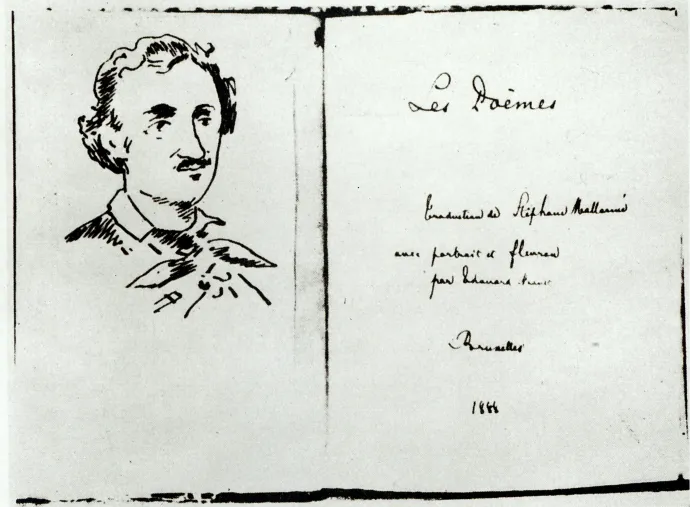 Les Poèmes
Traduction de Stéphane Mallarmé
avec portrait et fleuron
par Edouard Manet
Bruxelles
1888